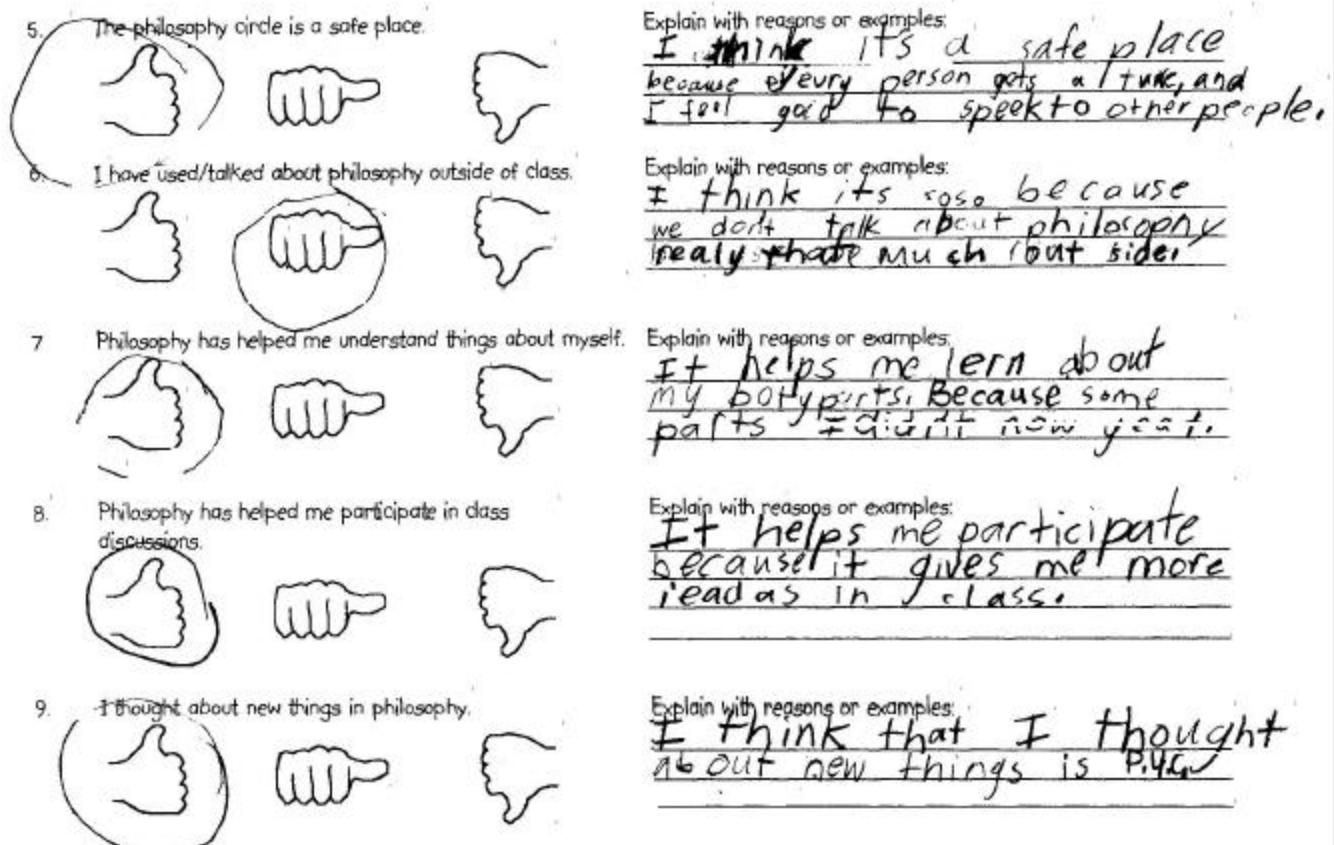 5. The philosophy circle is a safe place.
Explain with reasons or examples:
I think it's a safe place
because evury person gets a turc, and
I feel good to speek to other people.
6. I have used/talked about philosophy outside of class.
Explain with reasons or examples:
I think its soso because
we don't talk about philosophy
realy thate much out side.
7 Philosophy has helped me understand things about myself.
Explain with reasons or examples:
It helps me lern about
my botyparts. Because some
parts I didn't now yeat.
8. Philosophy has helped me participate in class
discussions.
Explain with reasons or examples:
It helps me participate
because it gives me more
ieadas in class.
9. I thought about new things in philosophy.
Explain with reasons or examples:
I think that I thought
about new things is P.Y.G.